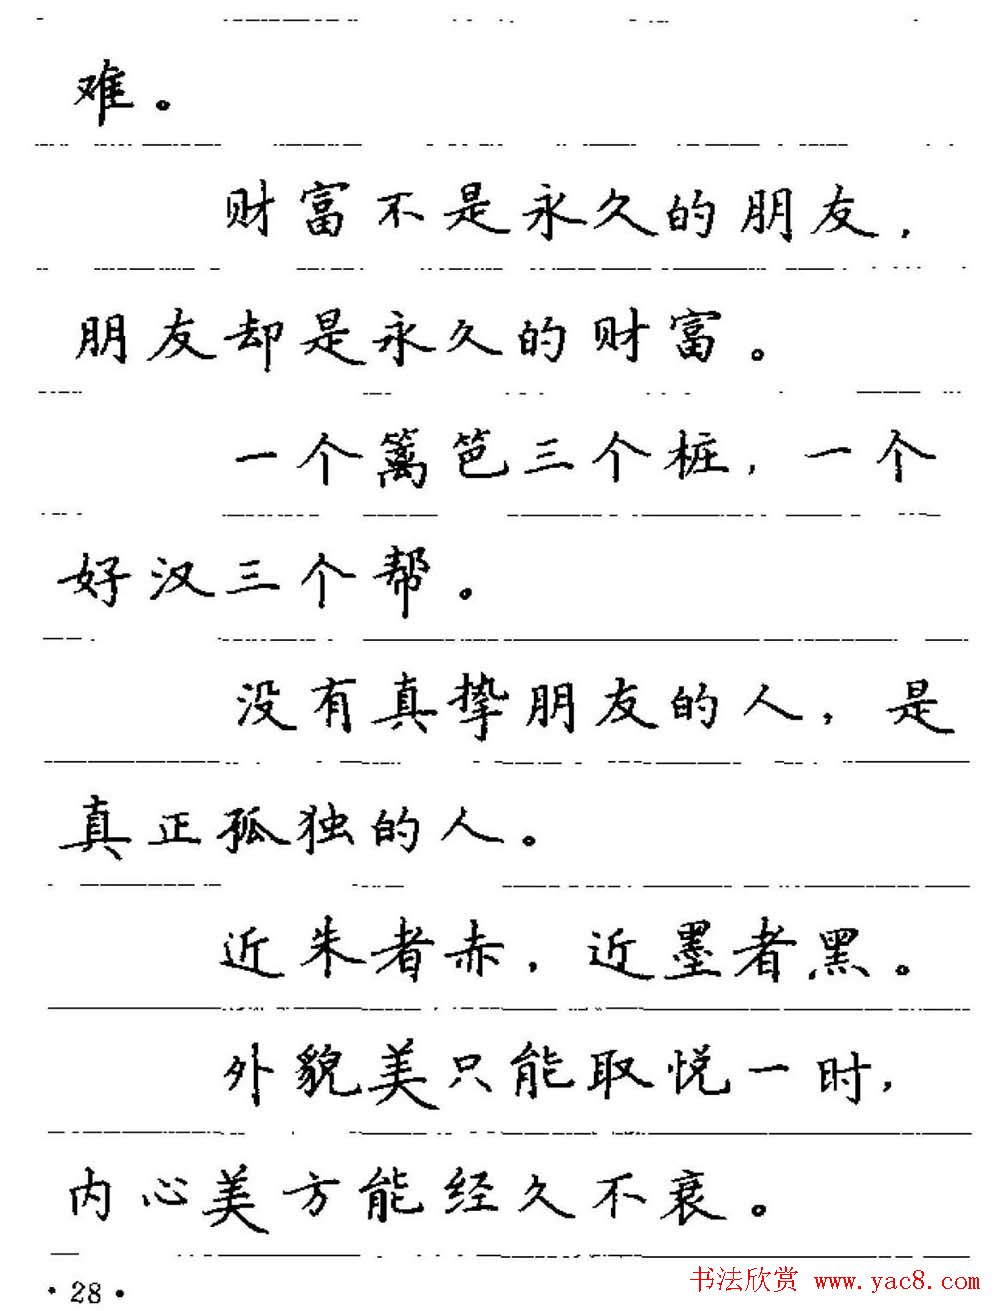 难。
财富不是永久的朋友，
朋友却是永久的财富。
一个篱笆三个桩，一个
好汉三个帮。
没有真挚朋友的人，是
真正孤独的人。
近朱者赤，近墨者黑。
外貌美只能取悦一时，
内心美方能经久不衰。
·28·
书法欣赏 www.yac8.com